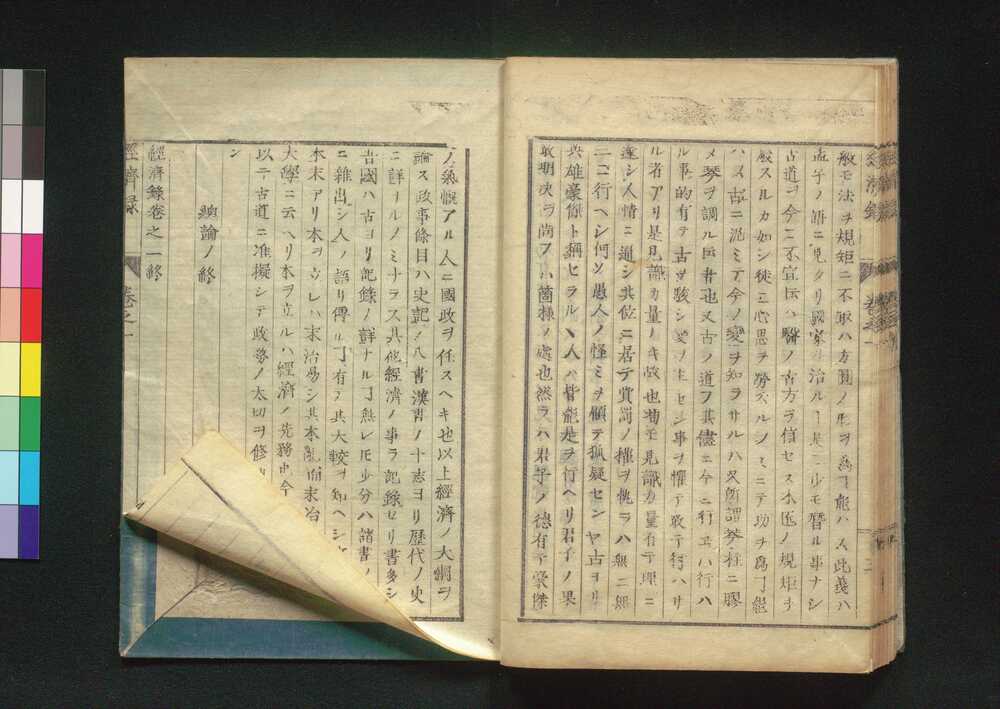 般モ法ヲ規矩ニ不取ハ方圓ノ形ヲ為ス能ハス此義ハ
孟子ノ語ニ見タリ國家ヲ治ルモ是ニ少モ替ル事ナシ
古道ヲ今ニ不宜伝ハ醫ノ古方ヲ信セス木匠ノ規矩ヲ
廢スルカ如シ徒ニ心思ヲ勞スルノミニテ功ヲ為丁能
ハス古ニ泥ミテ今ノ變ヲ知ラサルハ又所謂琴柱ニ膠
メ琴ヲ調ル 者也又古ノ道ヲ其儘ニ今ニ行ヱハ行ハ
ル事的有テ古ヲ駭シ ノ生セシ事ヲ懼テ敢テ行ハサ
ル者アリ是見識力量ノ キ故也苟モ見識力量有テ理ニ
達シ人情ニ通シ其位ニ居テ賞罰ノ權ヲ執ラハ無二無
三ニ行ヘシ何ソ愚人ノ怪ミヲ顧テ狐疑センヤ古ヨリ
英雄豪傑ト稱セラルヽ人ハ皆能是ヲ行ヘリ君子ノ果
敢明決ヲ尚フハ箇様ノ處也然ラハ君子ノ德有テ豪傑
ノ氣慨アル人ニ國政ヲ任スヘキ也以上經濟ノ大綱ヲ
論ス政事條目ハ史記ノ八書漢書ノ十志ヨリ歷代ノ史
ニ詳ナルノミナラス其他經濟ノ事ヲ記録セリ書多シ
吾國ハ古ヨリ記録ノ詳ナル丁無レ 少分ハ諸書ノ
ニ雜出シ人ノ語リ傳ル丁有ヲ其大較ヲ知ヘシ
本末アリ本ヲ立レハ末治易シ其本亂而末治
大學ニ云ヘリ本ヲ立ルハ經濟ノ先務也今
以テ古道ニ准擬シテ政務ノ大切ヲ修
ン
總論ノ終
經濟録卷之一終
經濟録 卷之一